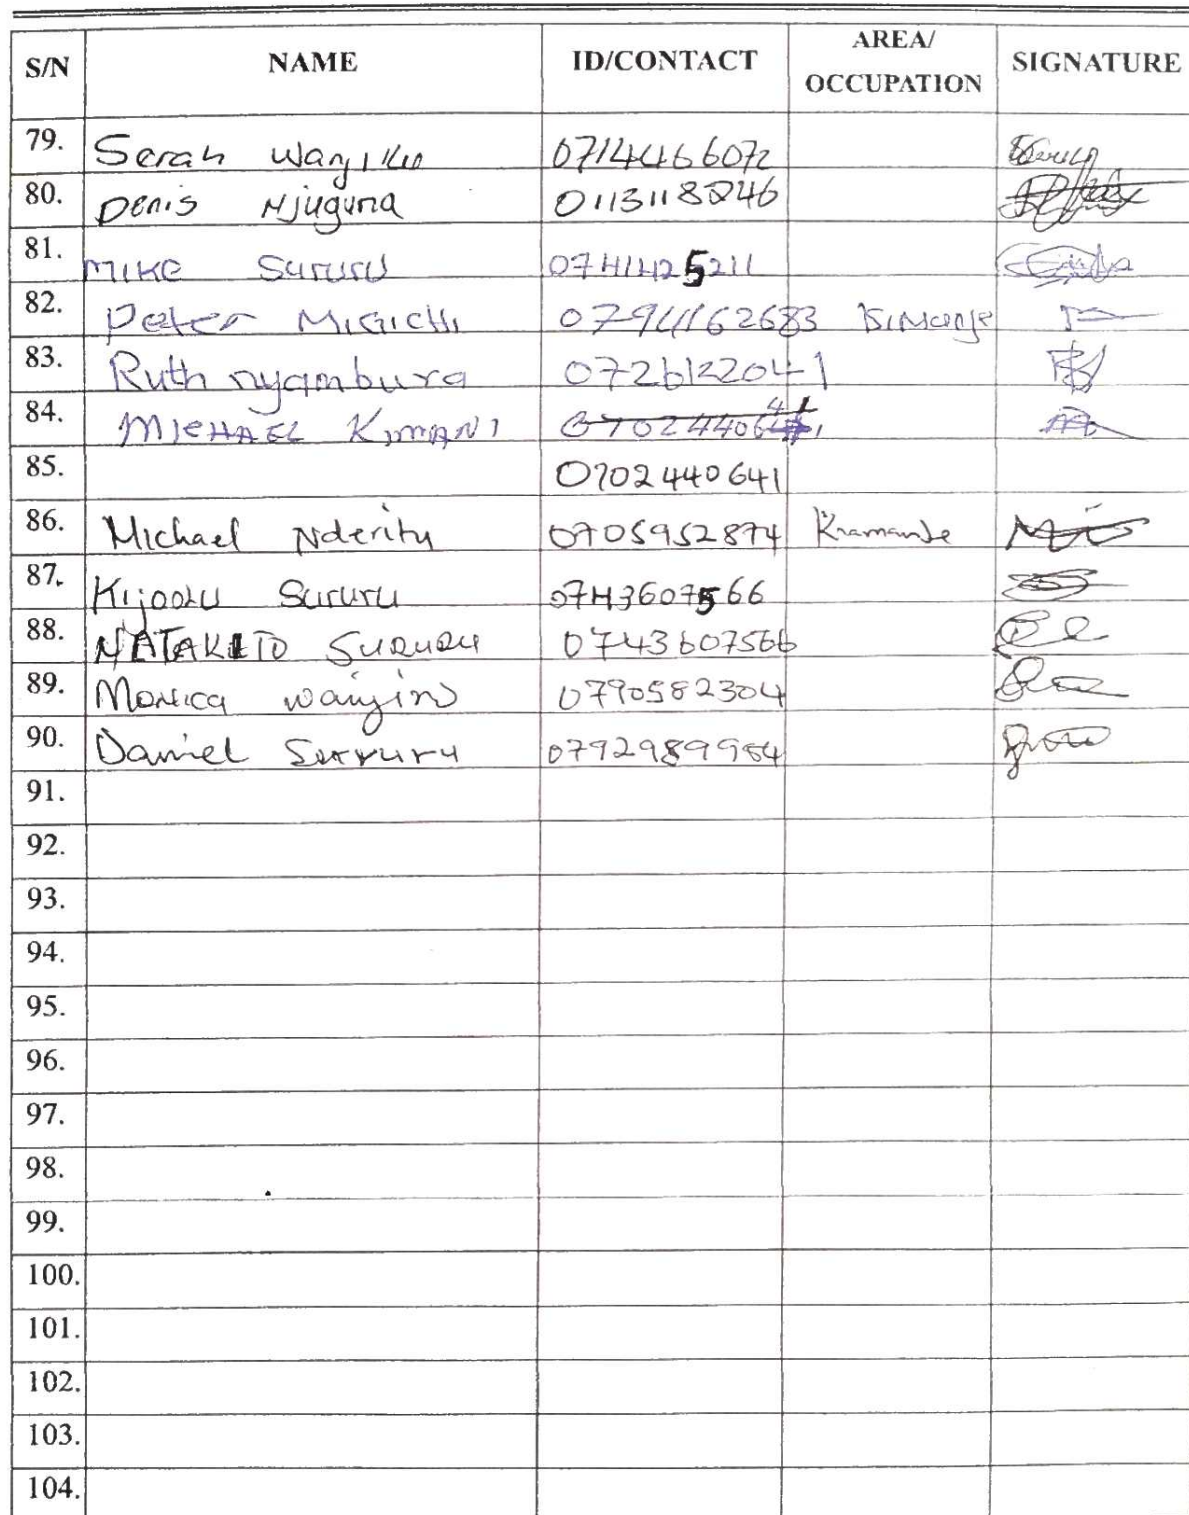 S/N NAME ID/CONTACT AREA/ OCCUPATION SIGNATURE
79. Serah Wanjiku 0714466072
80. Denis Njuguna 0113118246
81. MIKE Sururu 0741425211
82. Peter MIGICHI 0794162683
83. Ruth nyambura 0726122041
84. MICHAEL KIMANI
85. 0702440641
86. Michael Nderitu 0705952874
87. Kijoolu Sururu 0743607566
88. NATAKITO SURURU 0743607566
89. Monica 0790582304
90. Daniel Sururu 0792989984
91.
92.
93.
94.
95.
96.
97.
98.
99.
100.
101.
102.
103.
104.